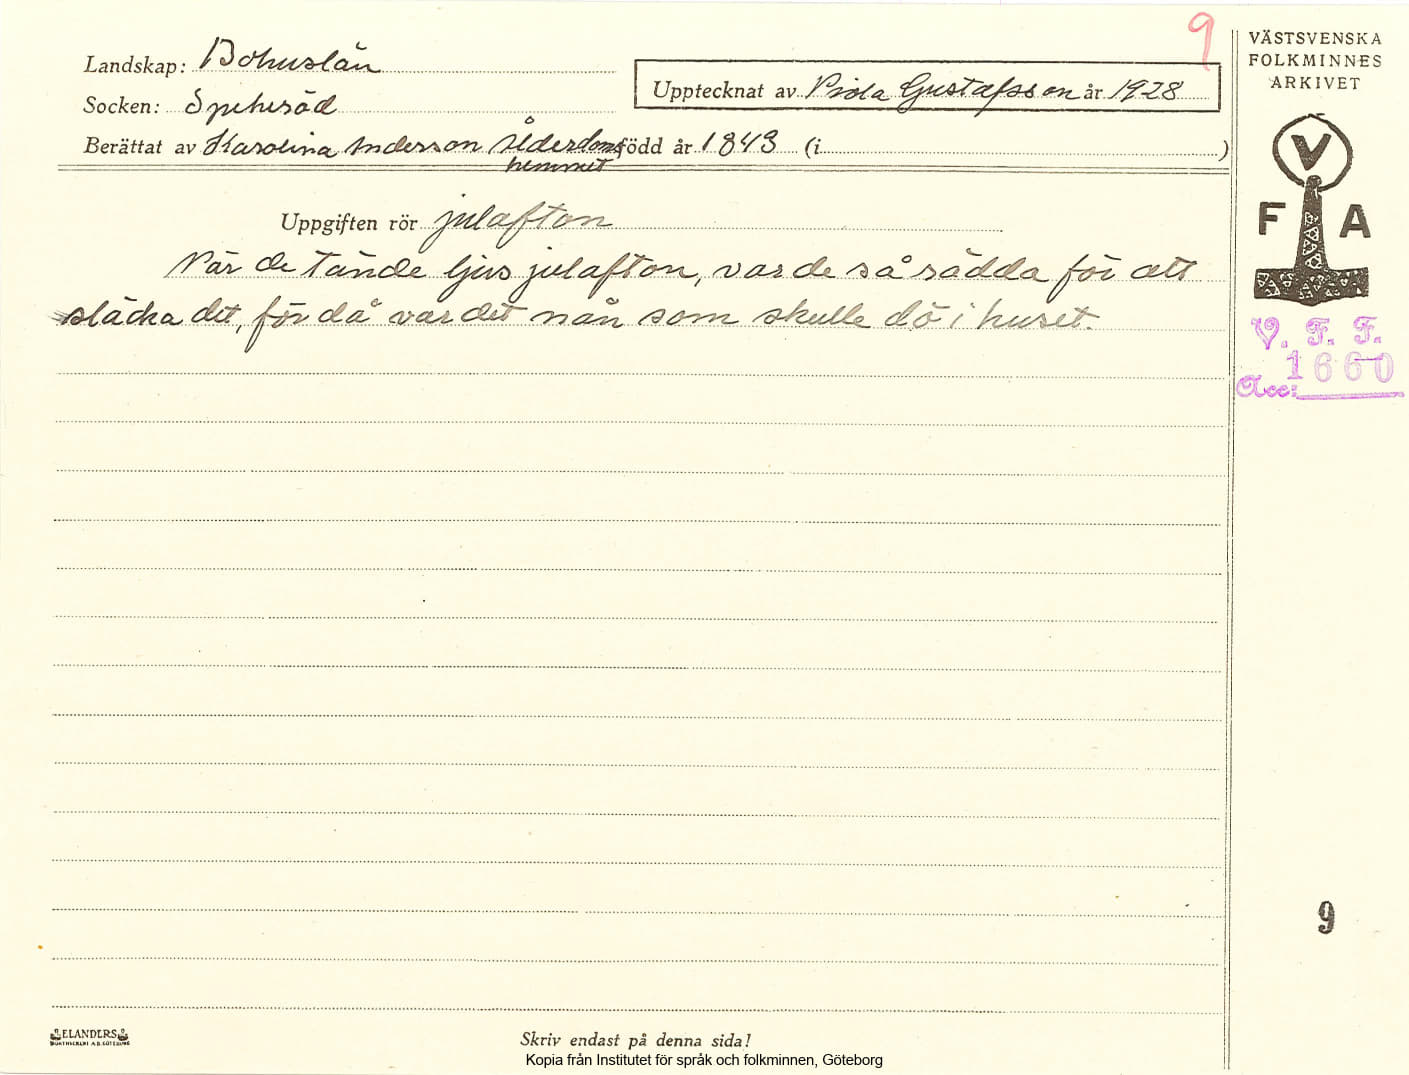 9
VÄSTSVENSKA
FOLKMINNES
ARKIVET
Landskap: Bohuslän
Upptecknat av Viola Gustafsson år 1928
Socken: Spekeröd
Berättat av Karolina Anderson Ålderdoms född år 1843 (i )
hemmet
V
F A
Uppgiften rör julafton
När de tände ljus julafton, var de så rädda för att
släcka det, för då var det nån som skulle dö i huset.
V. F. F.
1660
Acc:
9
ELANDERS
BOKTRYCKERI A.B. GÖTEBORG
Skriv endast på denna sida!
Kopia från Institutet för språk och folkminnen, Göteborg